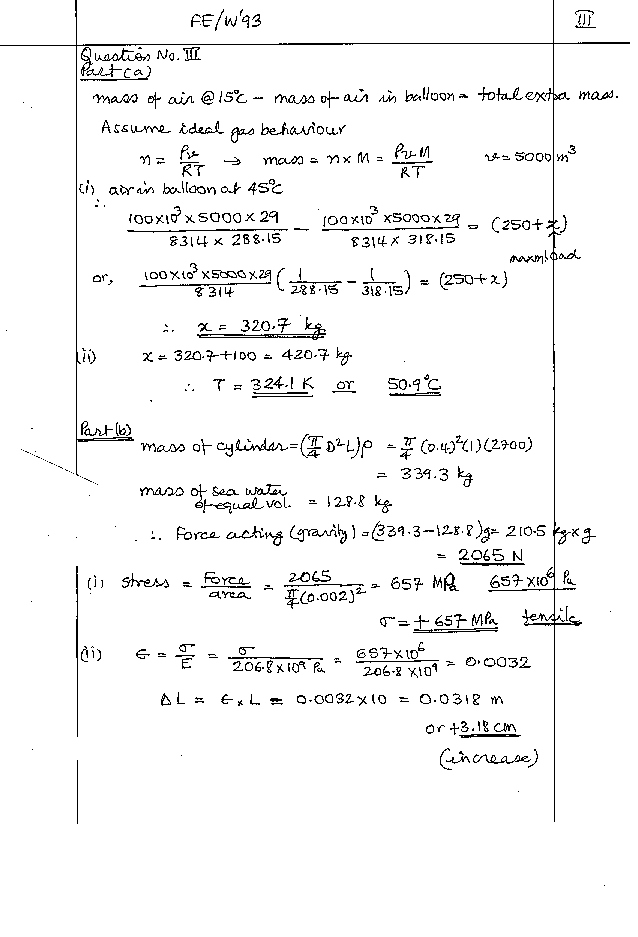 FE/W'93 III
Question No. III
Part (a)
mass of air @ 15°C - mass of air in balloon = total extra mass.
Assume ideal gas behaviour
n = Pv/RT → mass = n × M = PvM/RT v = 5000 m³
(i) air in balloon at 45°C
∴ 100×10³×5000×29/8314 × 288.15 - 100×10³×5000×29/8314 × 318.15 = (250 + x)
maxm load
or, 100×10³×5000×29/8314 (1/288.15 - 1/318.15) = (250 + x)
∴ x = 320.7 kg
(ii) x = 320.7 + 100 = 420.7 kg.
∴ T = 324.1 K or 50.9°C
Part (b)
mass of cylinder = (π/4 D²L)ρ = π/4 (0.4)²(1)(2700)
= 339.3 kg
mass of sea water
of equal vol. = 128.8 kg
∴ Force acting (gravity) = (339.3 - 128.8)g = 210.5 kg × g
= 2065 N
(i) stress = Force/area = 2065/π/4(0.002)² = 657 MPa 657×10⁶ Pa
σ = + 657 MPa tensile
(ii) ε = σ/E = σ/206.8×10⁹ Pa = 657×10⁶/206.8×10⁹ = 0.0032
ΔL = ε × L = 0.0032×10 = 0.0318 m
or +3.18 cm
(increase)